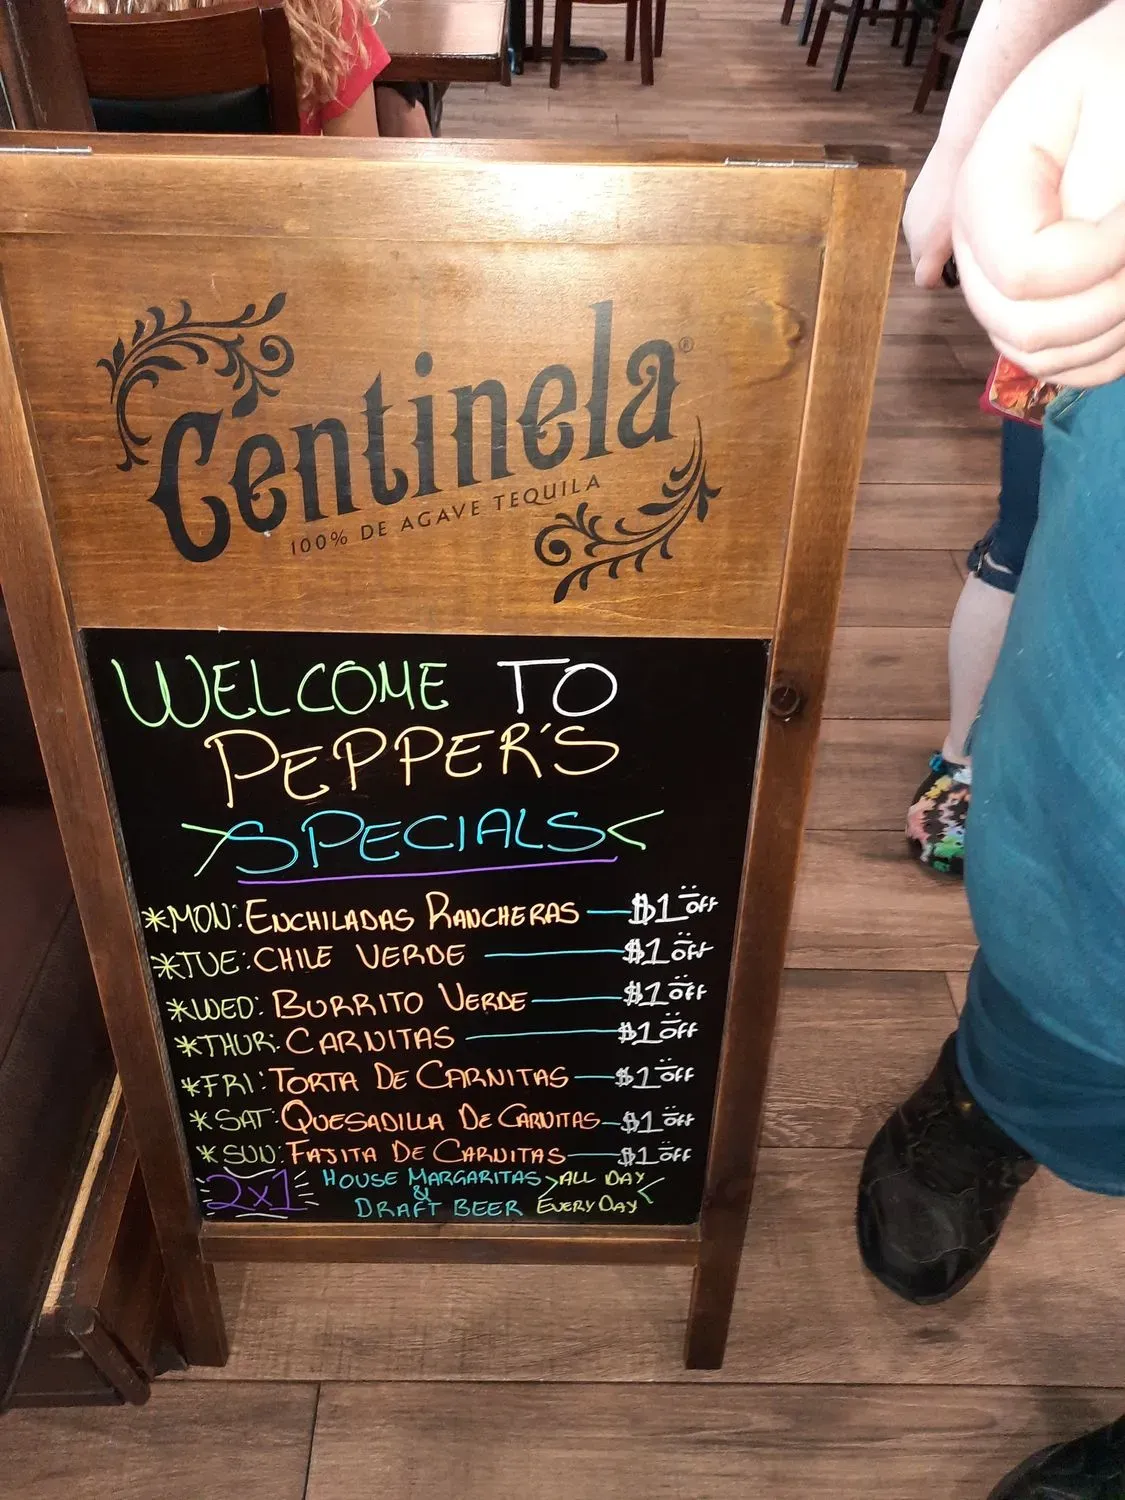 Centinela®
100% DE AGAVE TEQUILA
WELCOME TO
PEPPER'S
>SPECIALS<
*MON: ENCHILADAS RANCHERAS — $1 OFF
*TUE: CHILE VERDE — $1 OFF
*WED: BURRITO VERDE — $1 OFF
*THUR: CARNITAS — $1 OFF
*FRI: TORTA DE CARNITAS — $1 OFF
*SAT: QUESADILLA DE CARNITAS — $1 OFF
*SUN: FAJITA DE CARNITAS — $1 OFF
2x1 HOUSE MARGARITAS >ALL DAY<
&
DRAFT BEER EVERY DAY